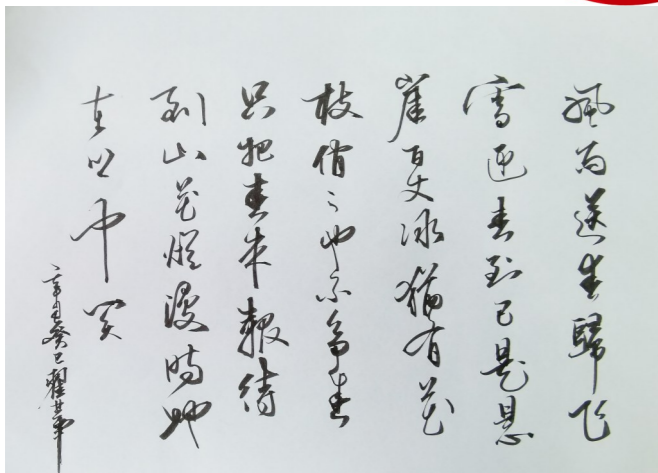 風雨送春歸飞
雪迎春到已是悬
崖百丈冰猶有花
枝俏〻也不争春
只把春来報待
到山花爛漫時她
在丛中笑
辛丑癸巳